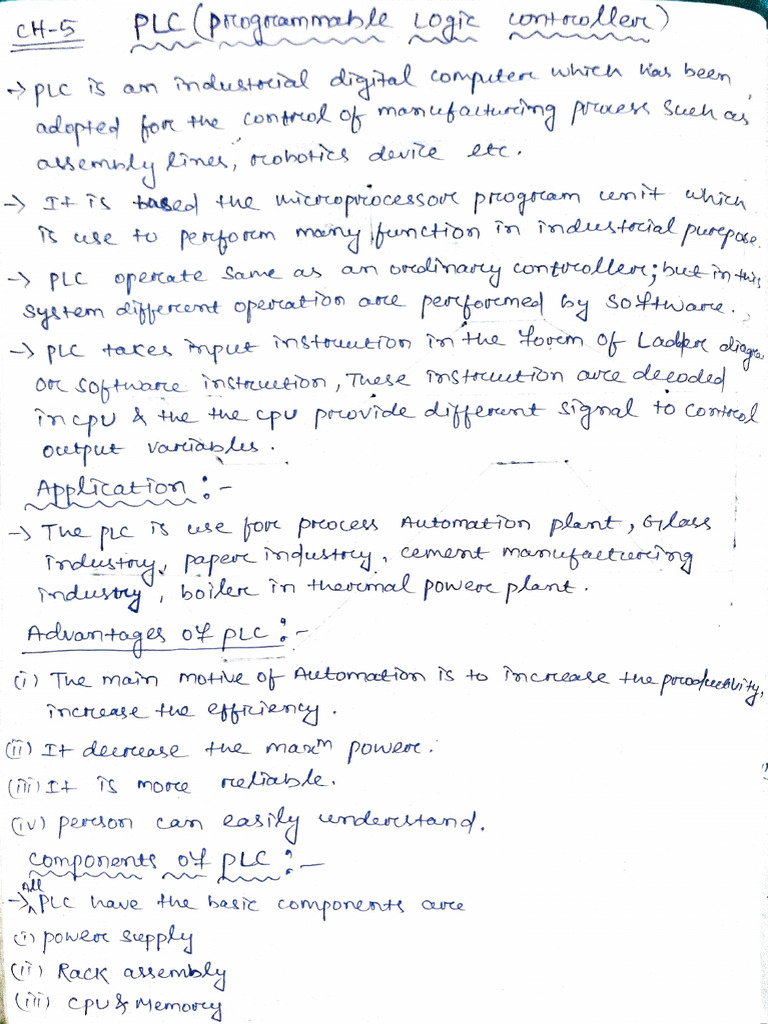 CH-5 PLC (programmable Logic controller)
→ PLC is an industrial digital computer which has been
adopted for the control of manufacturing process such as
assembly lines, robotics device etc.
→ It is based the microprocessor program unit which
is use to perform many function in industrial purpose.
→ PLC operate same as an ordinary controller; but in this
system different operation are performed by software.
→ PLC takes input instruction in the form of Ladder diagra
or software instruction, These instruction are decoded
in cpu & the the cpu provide different signal to control
output variables.
Application :-
→ The PLC is use for process Automation plant, Glass
industry, paper industry, cement manufacturing
industry, boiler in thermal power plant.
Advantages of PLC :-
(i) The main motive of Automation is to increase the productivity,
increase the efficiency.
(ii) It decrease the maxm power.
(iii) It is more reliable.
(iv) person can easily understand.
components of PLC :-
→ All PLC have the basic components are
(i) power supply
(ii) Rack assembly
(iii) CPU & Memory